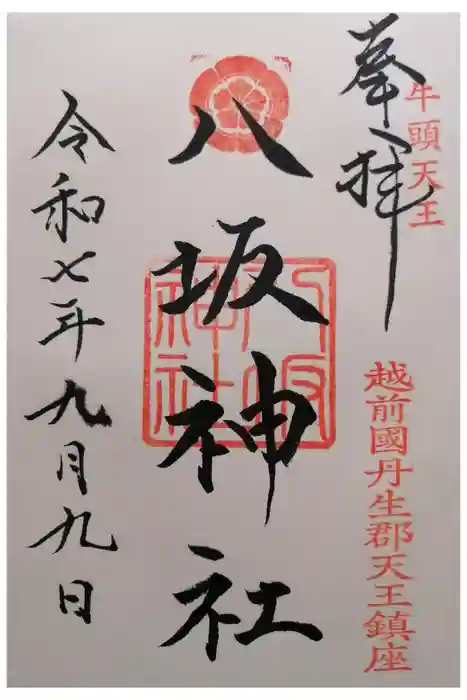 奉拝
牛頭天王
越前國丹生郡天王鎮座
八坂神社
八坂神社
令和七年九月九日